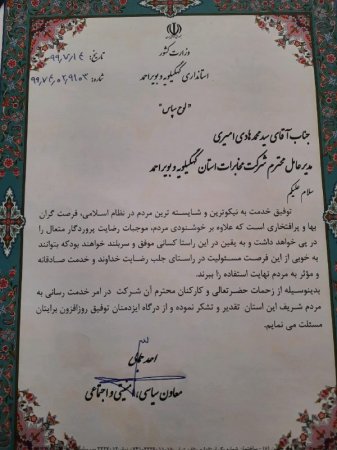 وزارت کشور
استانداری کهگیلویه و بویراحمد
تاریخ: ۹۹,۷,۱۴
شماره: ۹۹,۷۴,۰۲,۹۱۰۳
"لوح سپاس"
جناب آقای سید محمد هادی امیری
مدیرعامل محترم شرکت مخابرات استان کهگیلویه و بویراحمد
سلام علیکم
توفیق خدمت به نیکوترین و شایسته ترین مردم در نظام اسلامی، فرصت گران
بها و پرافتخاری است که علاوه بر خشنودی مردم، موجبات رضایت پروردگار متعال را
در پی خواهد داشت و به یقین در این راستا کسانی موفق و سربلند خواهند بودکه بتوانند
به خوبی از این فرصت مسئولیت در راستای جلب رضایت خداوند و خدمت صادقانه
و مؤثر به مردم نهایت استفاده را ببرند.
بدینوسیله از زحمات حضرتعالی و کارکنان محترم آن شرکت در امر خدمت رسانی به
مردم شریف این استان تقدیر و تشکر نموده و از درگاه ایزدمنان توفیق روزافزون برایتان
مسئلت می نمایم.
احمد
معاون سیاسی، امنیتی و اجتماعی